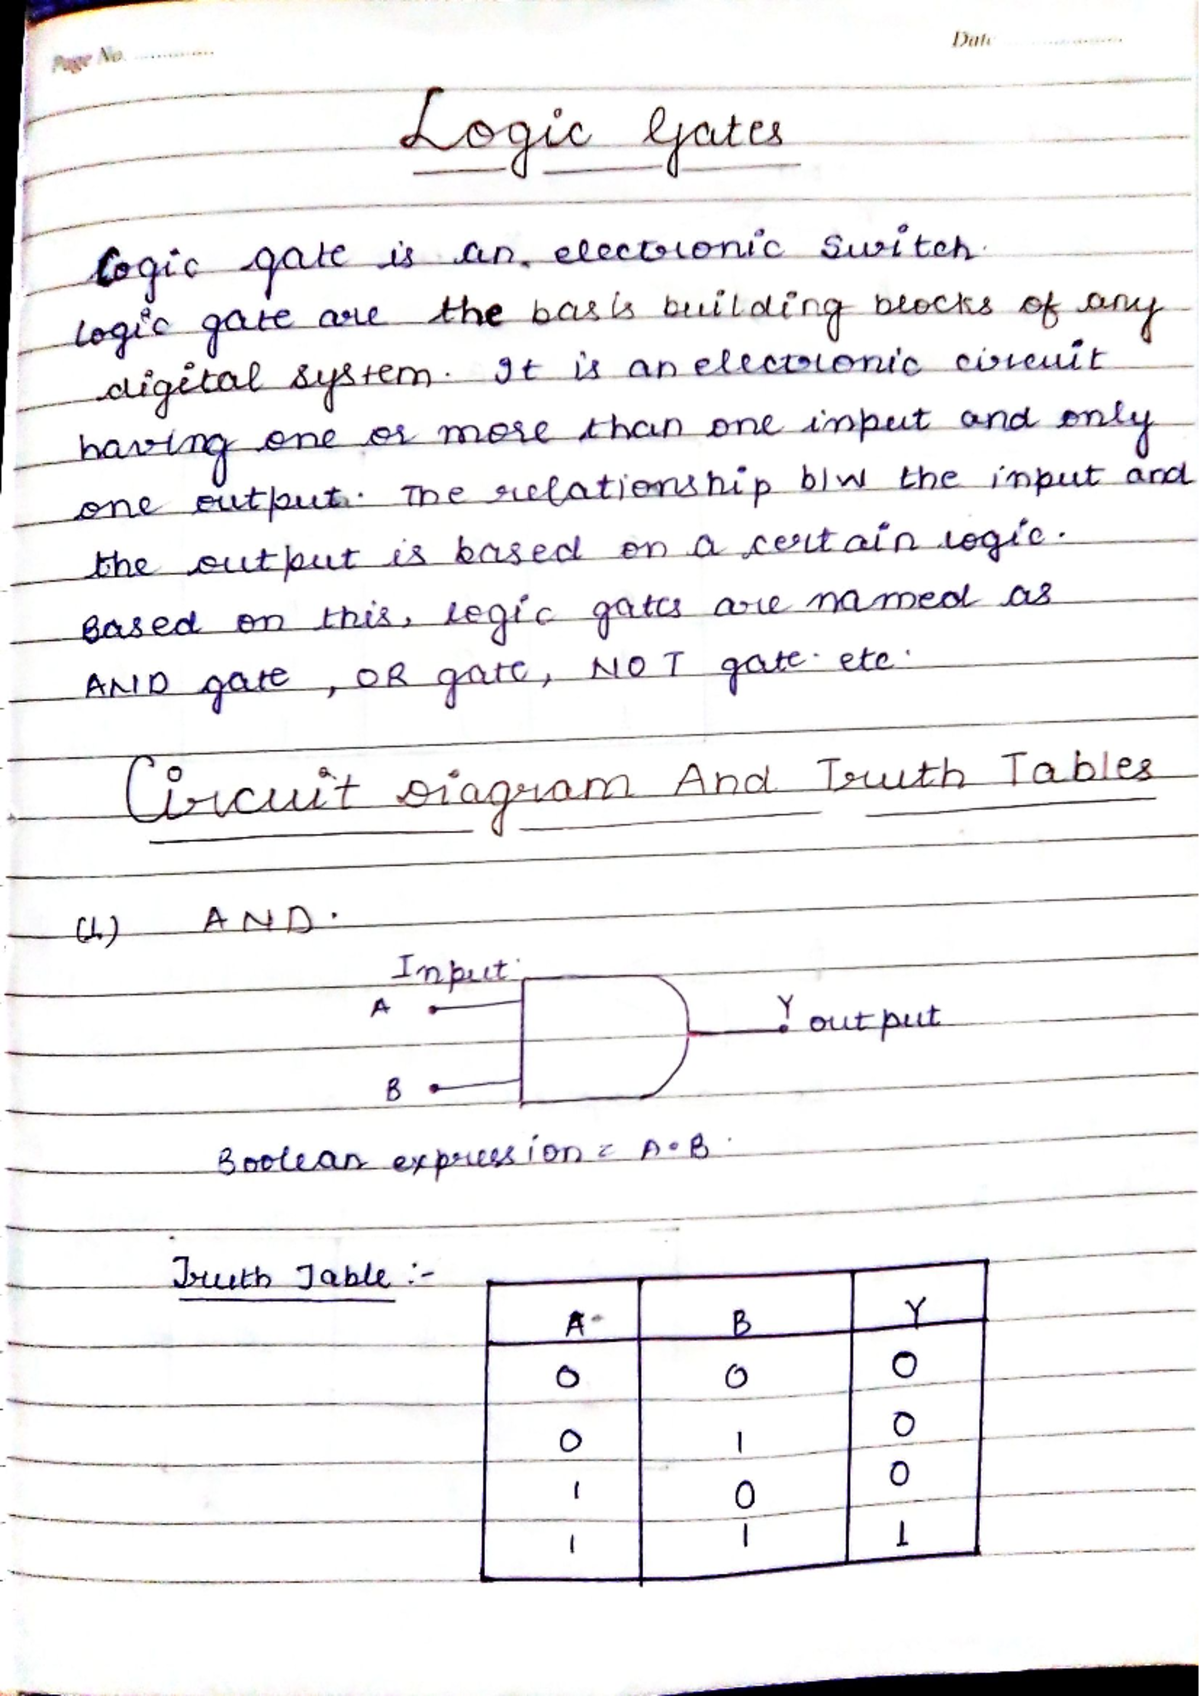 Page No. ..............
Date ..................
Logic Gates
Logic gate is an electronic switch.
logic gate are the basis building blocks of any
digital system. It is an electronic circuit
having one or more than one input and only
one output. The relationship b/w the input and
the output is based on a certain logic.
Based on this, logic gates are named as
AND gate, OR gate, NOT gate. etc.
Circuit Diagram And Truth Tables
(1) AND.
Input
A
Y output
B
Boolean expression = A.B
Truth Table :-
A B Y
0 0 0
0 1 0
1 0 0
1 1 1